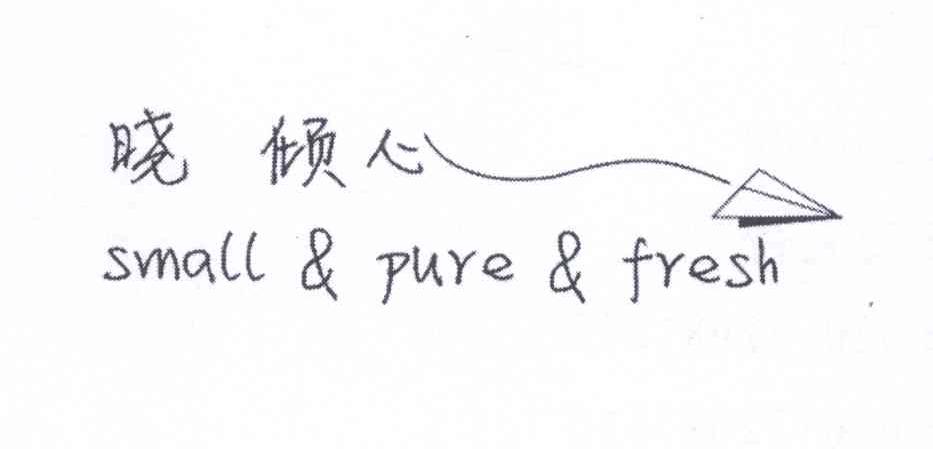 晓 倾心
small & pure & fresh